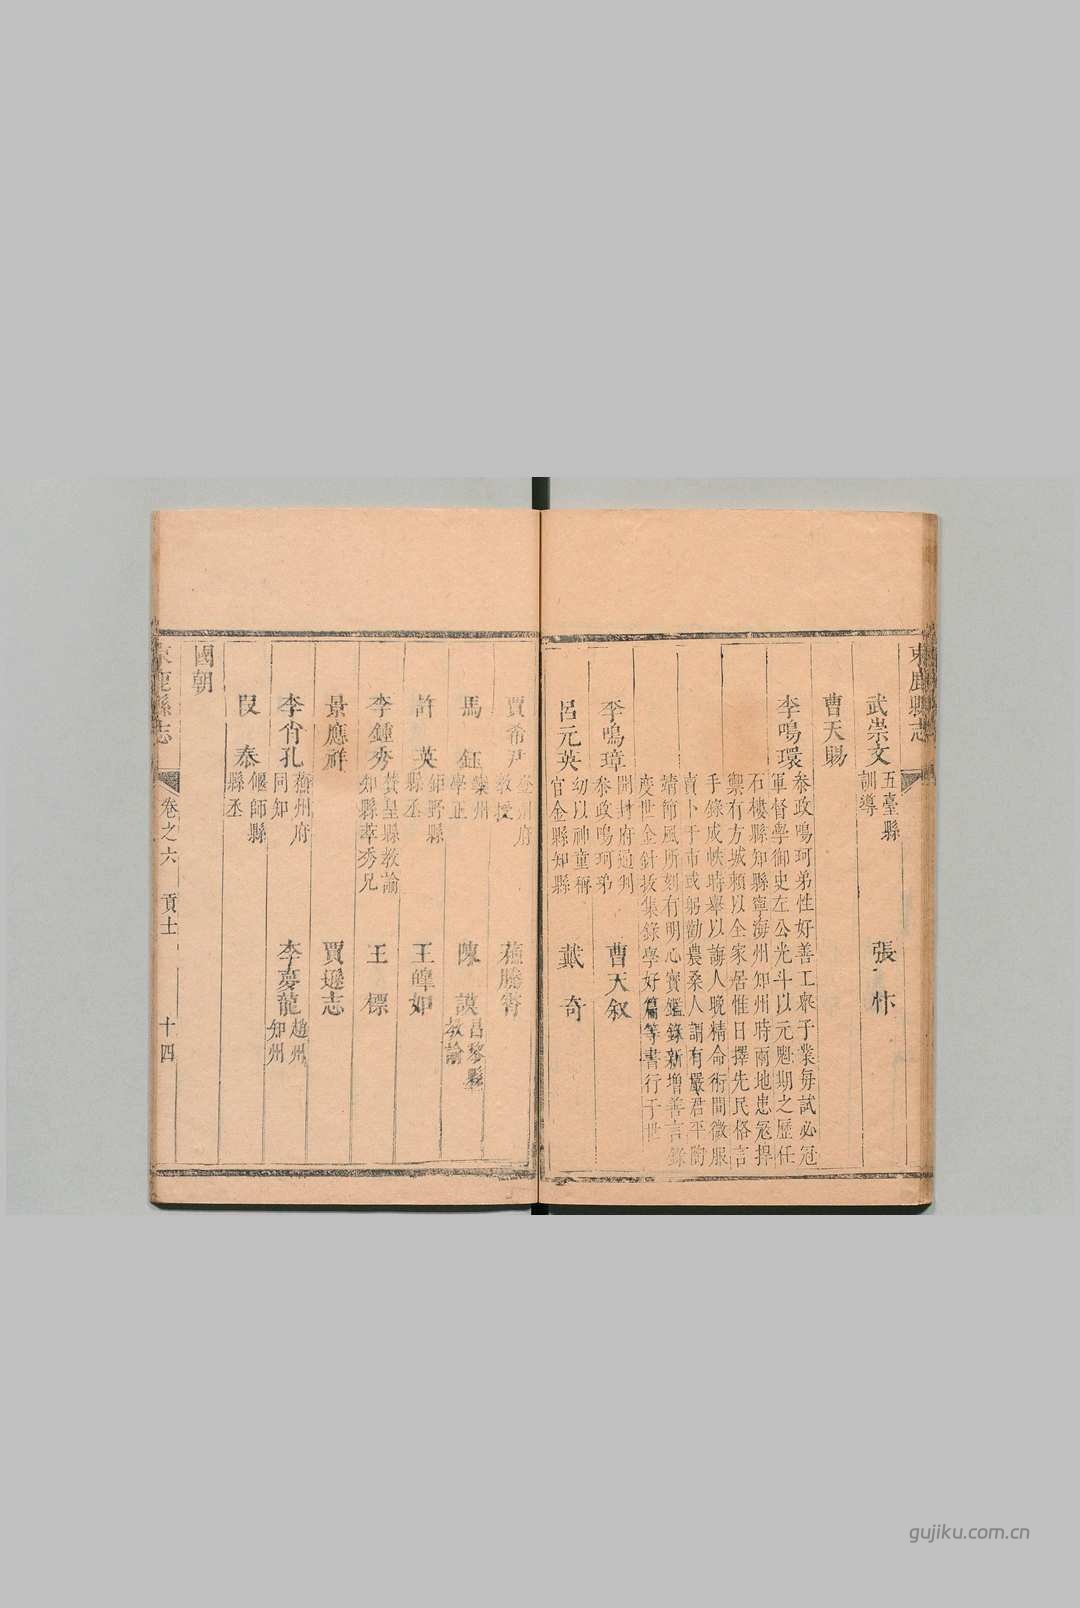 束鹿縣志
武崇文
五臺縣
訓導
張
曹天賜
李鳴環
參政鳴珂弟性好善工舉子業每試必冠
軍督學御史左公光斗以元魁期之歷任
石樓縣知縣寧海州知州時兩地患冦捍
禦有方城賴以全家居惟日擇先民格言
手錄成帙時舉以誨人晚精命術間微服
賣卜于市或躬勸農桑人謂有嚴君平陶
靖節風所刻有明心寶鑑錄新增善言錄
度世金針拔集錄學好篇等書行于世
李鳴璋
開封府通判
參政鳴珂弟
曹天叙
呂元英
幼以神童稱
官金縣知縣
戴奇
賈希尹
州府
教授
馬鈺
灤州
學正
陳謨
昌黎縣
教諭
許英
鉅野縣
縣丞
王暐如
李鍾秀
贊皇縣教諭
知縣萃秀兄
王標
景應祥
賈遜志
李肖孔
蘇州府
同知
李夢龍
趙州
知州
段泰
偃師縣
縣丞
國朝
束鹿縣志
卷之六
貢士
十四
gujiku.com.cn